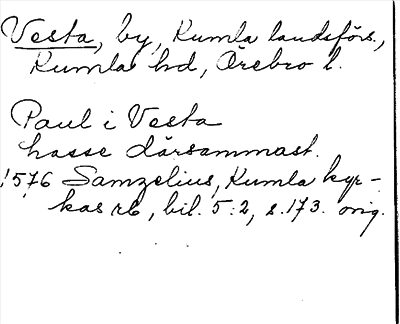 Vesta, by, Kumla landsförs.,
Kumla hd, Örebro l.
Paul i Vesta
hasse därsammast.
1576 Samzelius, Kumla kyr-
kas rb, bil. 5:2, s. 173. orig.